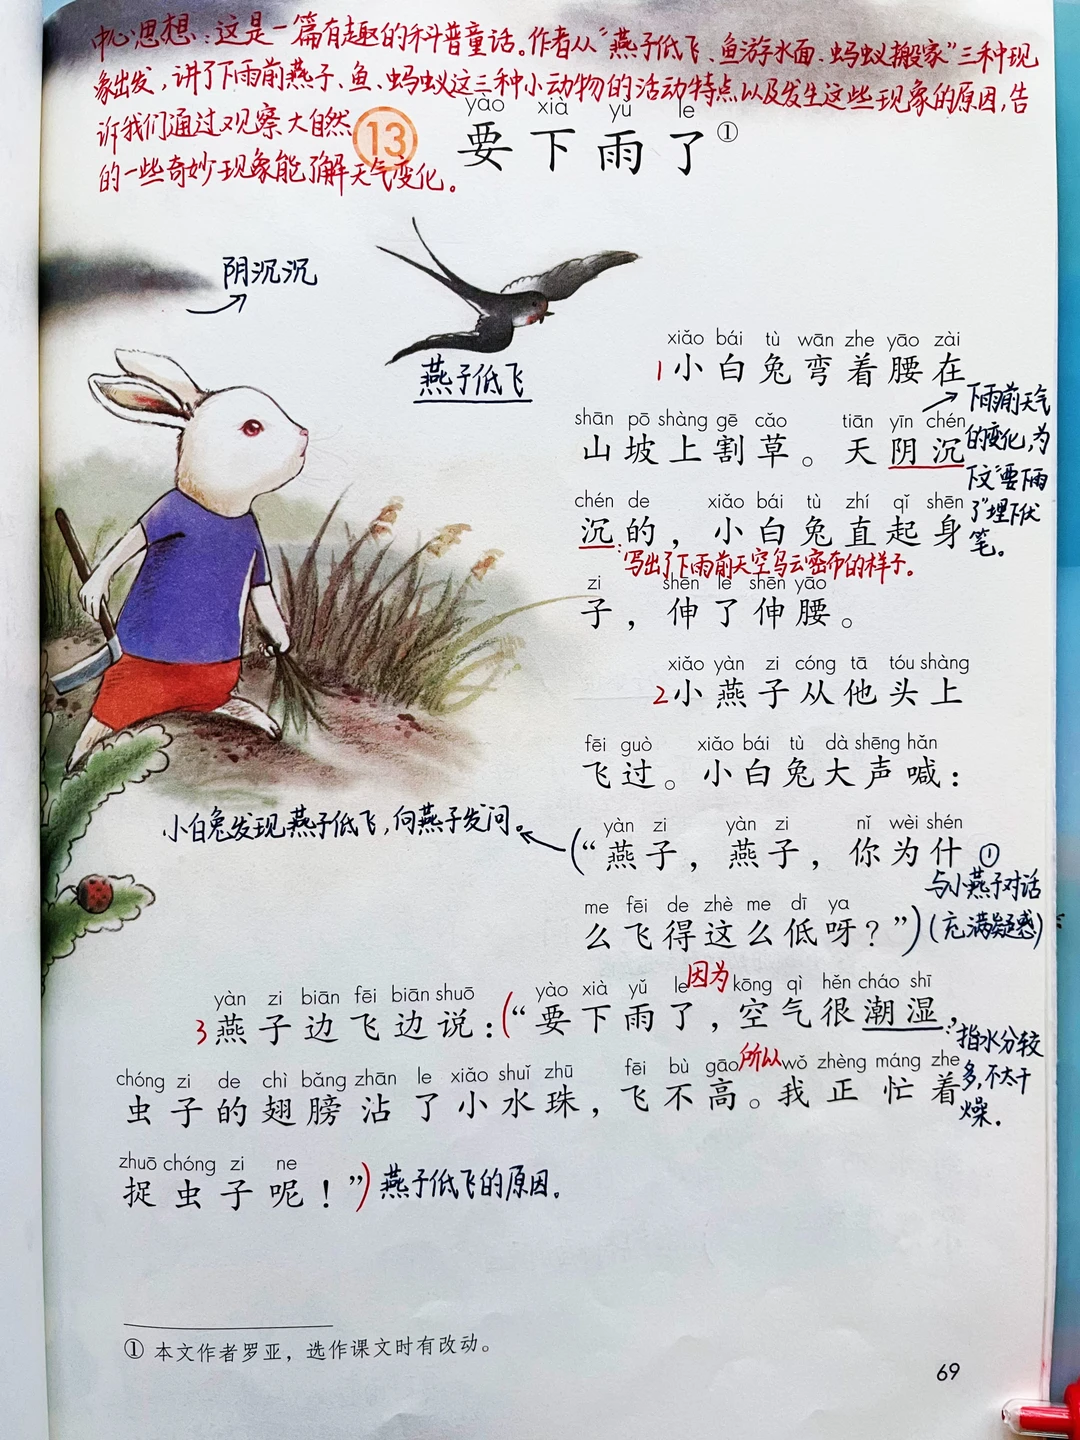 中心思想：这是一篇有趣的科普童话。作者从“燕子低飞、鱼游水面、蚂蚁搬家”三种现
象出发，讲了下雨前燕子、鱼、蚂蚁这三种小动物的活动特点以及发生这些现象的原因，告
诉我们通过观察大自然
的一些奇妙现象能了解天气变化。
yào xià yǔ le
13 要下雨了①
阴沉沉
燕子低飞
xiǎo bái tù wān zhe yāo zài
1小白兔弯着腰在
下雨前天气
的变化，为
下文“要下雨
了”埋下伏
笔。
shān pō shàng gē cǎo tiān yīn chén
山坡上割草。天阴沉
chén de xiǎo bái tù zhí qǐ shēn
沉的，小白兔直起身
：写出了下雨前天空乌云密布的样子。
zi shēn le shēn yāo
子，伸了伸腰。
xiǎo yàn zi cóng tā tóu shàng
2小燕子从他头上
fēi guò xiǎo bái tù dà shēng hǎn
飞过。小白兔大声喊：
小白兔发现燕子低飞，向燕子发问。
yàn zi yàn zi nǐ wèi shén
（“燕子，燕子，你为什
①
与小燕子对话
（充满疑惑）
me fēi de zhè me dī ya
么飞得这么低呀？”）
yàn zi biān fēi biān shuō yào xià yǔ le 因为 kōng qì hěn cháo shī
3燕子边飞边说：（“要下雨了，空气很潮湿，
：指水分较
多，不太干
燥。
chóng zi de chì bǎng zhān le xiǎo shuǐ zhū fēi bù gāo 所以 wǒ zhèng máng zhe
虫子的翅膀沾了小水珠，飞不高。我正忙着
zhuō chóng zi ne
捉虫子呢！”）燕子低飞的原因。
① 本文作者罗亚，选作课文时有改动。
69